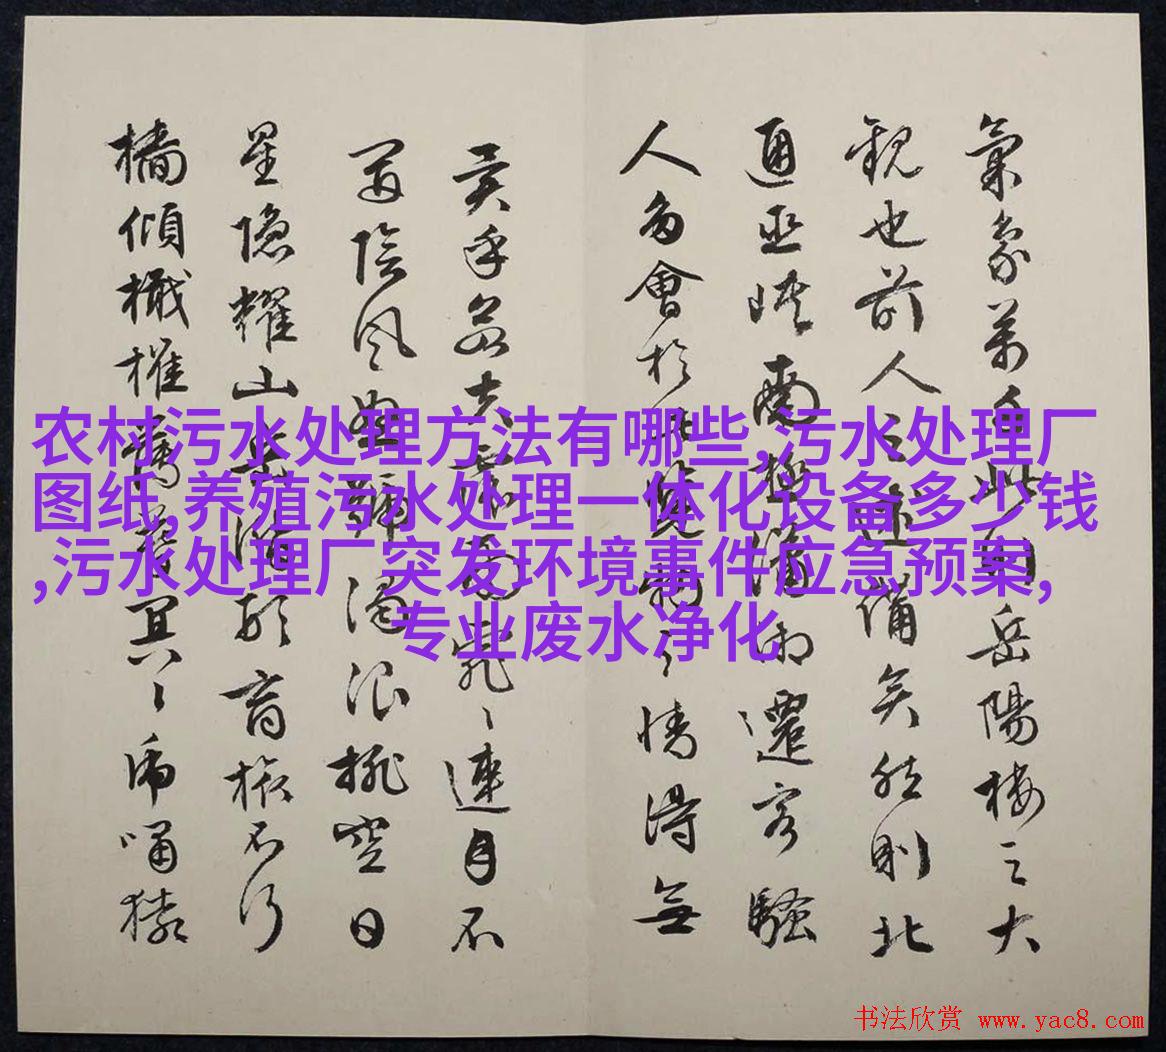 氣象萬千此則岳陽樓之大
觀也前人之述備矣然則北
通巫峽南極瀟湘遷客騷
人多會於此覽物之情得無
異乎若夫雨霏〻連月不
陰風怒號濁浪排空日
星隱耀山岳潛形商旅不行
檣傾檝摧薄暮冥〻虎嘯猿
农村污水处理方法有哪些,污水处理厂
图纸,养殖污水处理一体化设备多少钱
,污水处理厂突发环境事件应急预案,
专业废水净化
书法欣赏 www.yac8.com